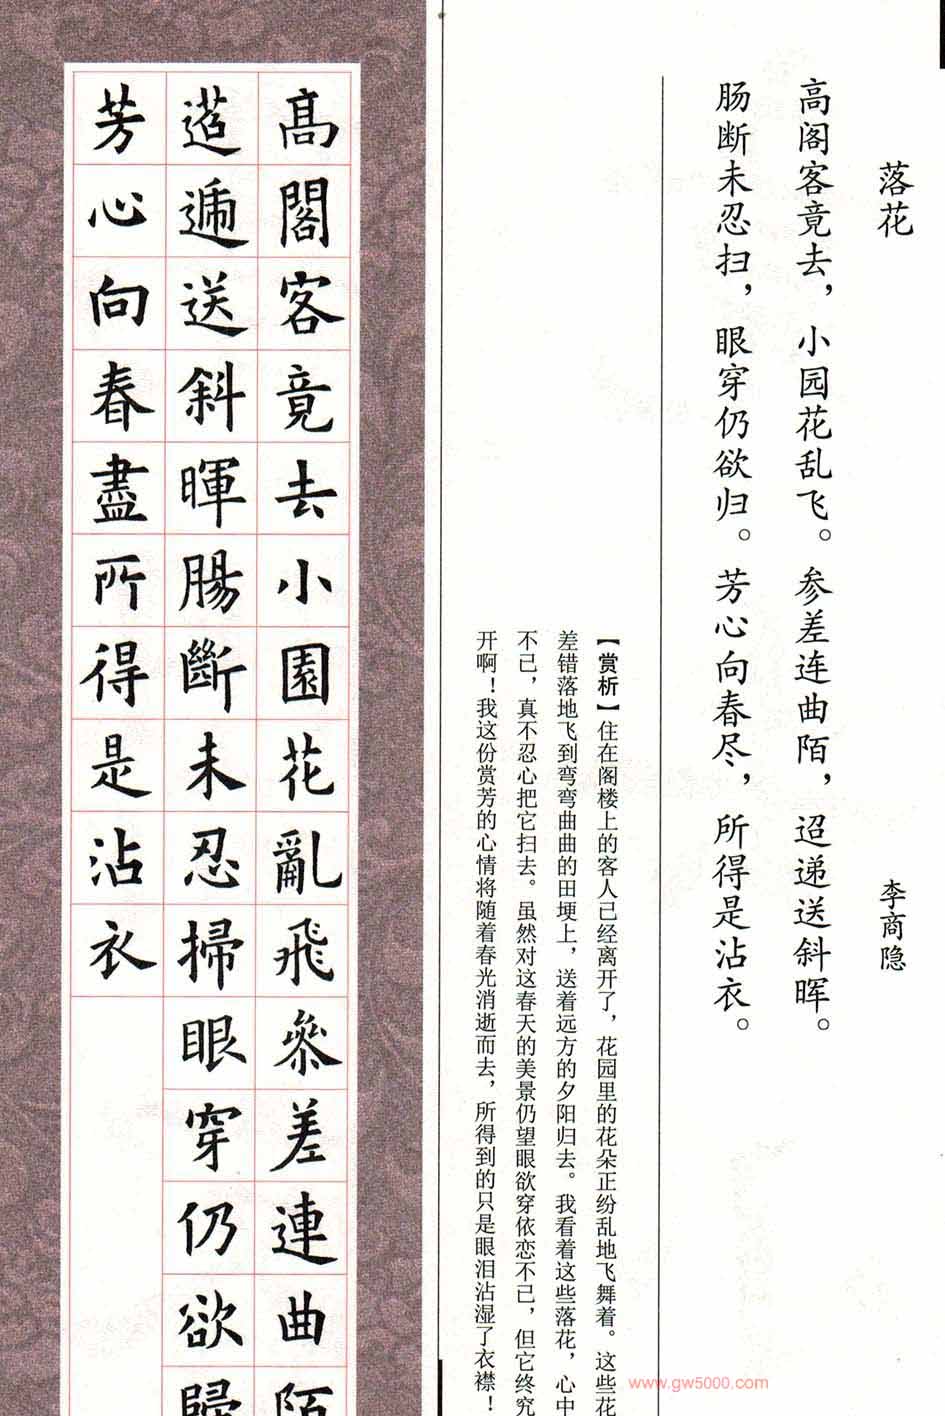 落花
李商隐
高阁客竟去，小园花乱飞。参差连曲陌，迢递送斜晖。
肠断未忍扫，眼穿仍欲归。芳心向春尽，所得是沾衣。
【赏析】住在阁楼上的客人已经离开了，花园里的花朵正纷乱地飞舞着。这些花
差错落地飞到弯弯曲曲的田埂上，送着远方的夕阳归去。我看着这些落花，心中
不已，真不忍心把它扫去。虽然对这春天的美景仍望眼欲穿依恋不已，但它终究
开啊！我这份赏芳的心情将随着春光消逝而去，所得到的只是眼泪沾湿了衣襟！
高閣客竟去小園花亂飛參差連曲陌
迢遞送斜暉腸斷未忍掃眼穿仍欲歸
芳心向春盡所得是沾衣
www.gw5000.com